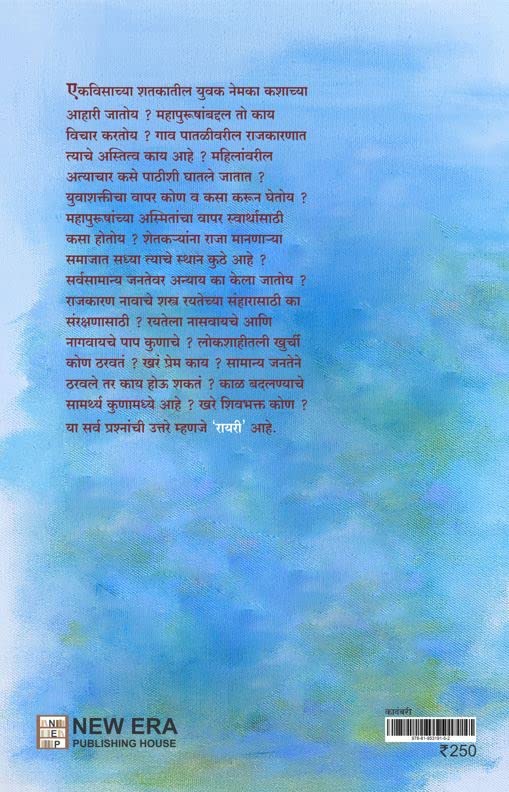 एकविसाच्या शतकातील युवक नेमका कशाच्या
आहारी जातोय ? महापुरूषांबद्दल तो काय
विचार करतोय ? गाव पातळीवरील राजकारणात
त्याचे अस्तित्व काय आहे ? महिलांवरील
अत्याचार कसे पाठीशी घातले जातात ?
युवाशक्तीचा वापर कोण व कसा करून घेतोय ?
महापुरूषांच्या अस्मितांचा वापर स्वार्थासाठी
कसा होतोय ? शेतकऱ्यांना राजा मानणाऱ्या
समाजात सध्या त्याचे स्थाने कुठे आहे ?
सर्वसामान्य जनतेवर अन्याय का केला जातोय ?
राजकारण नावाचे शस्त्र रयतेच्या संहारासाठी का
संरक्षणासाठी ? रयतेला नासवायचे आणि
नागवायचे पाप कुणाचे ? लोकशाहीतली खुर्ची
कोण ठरवतं ? खरं प्रेम काय ? सामान्य जनतेने
ठरवले तर काय होऊ शकतं ? काळ बदलण्याचे
सामर्थ्य कुणामध्ये आहे ? खरे शिवभक्त कोण ?
या सर्व प्रश्नांची उत्तरे म्हणजे ‘रायरी’ आहे.
NEP
NEW ERA
PUBLISHING HOUSE
कादंबरी
978-81-953191-5-2
₹250